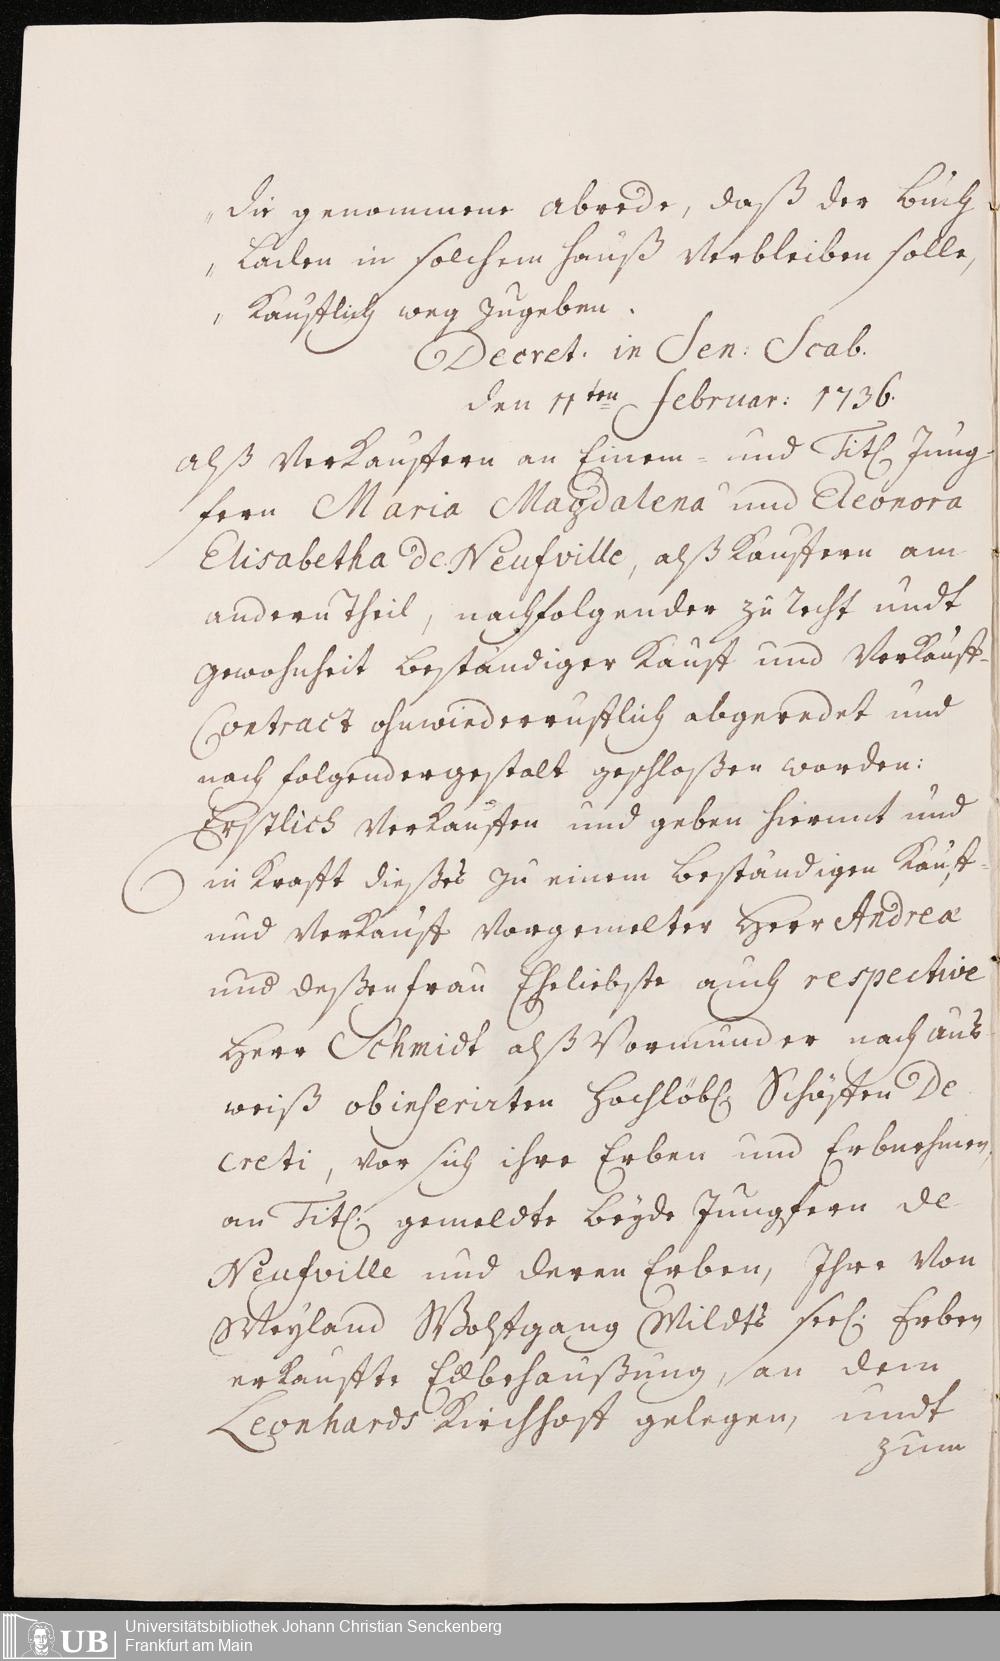 „ die genommene abrede, daß der Buch
„ Laden in solchem Hauß Verbleiben solle,
„ Kaufflich weg zugeben.
Decret. in Sen: Scab.
den 11ten Februar: 1736.
alß Verkauffern an Einem- und Titl. Jung-
fern Maria Magdalena und Eleonora
Elisabetha de Neufville, alß Kauffern am
andern Theil, nachfolgender zu recht undt
gewohnheit beständiger Kauff und Verkauff-
Contract ohnwiederrufflich abgeredet und
nach folgendergestalt geschloßen worden:
Erstlich Verkauffen und geben hiermit und
in Krafft dießes zu einem beständigen Kauff-
und Verkauff Vorgemelter Herr Andreæ
und deßen frau Eheliebste auch respective
Herr Schmidt alß Vormunder nach aus-
weiß obinserirten Hochlöbl. Schöffen De
creti, vor sich ihre Erben und Erbnehmen,
an Titl. gemeldte beyde Jungfern de
Neufville und deren Erben, Ihre Von
Weyland Wolffgang Wildts seel. Erben
erkauffte Eckbehaußung, an dem
Leonhards Kirchhoff gelegen, undt
zum
UB
Universitätsbibliothek Johann Christian Senckenberg
Frankfurt am Main